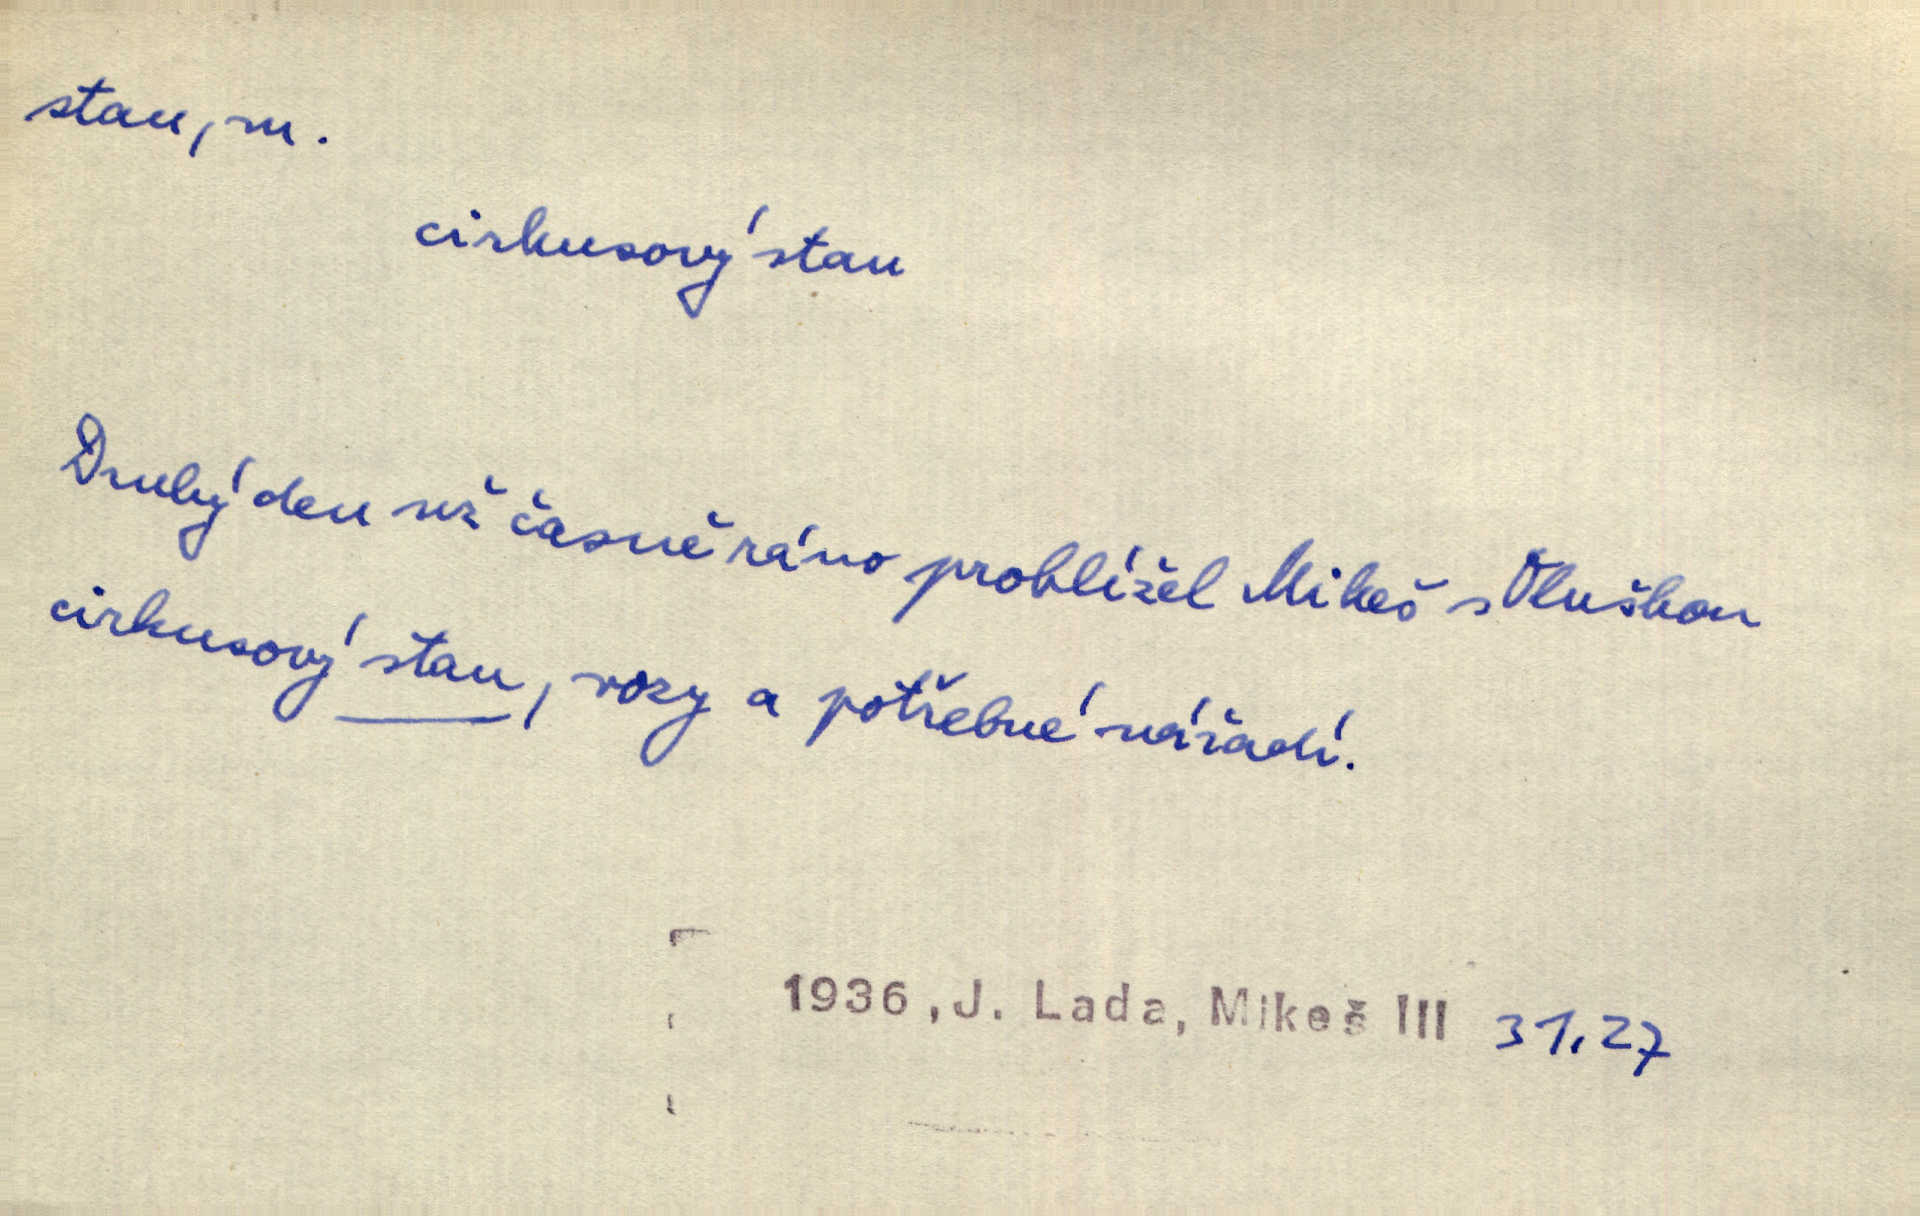 stan, m.
cirkusový stan
Druhý den už časně ráno prohlížel Mikeš s Oluškou
cirkusový stan, vozy a potřebné nářadí.
1936, J. Lada, Mikeš III 31,27